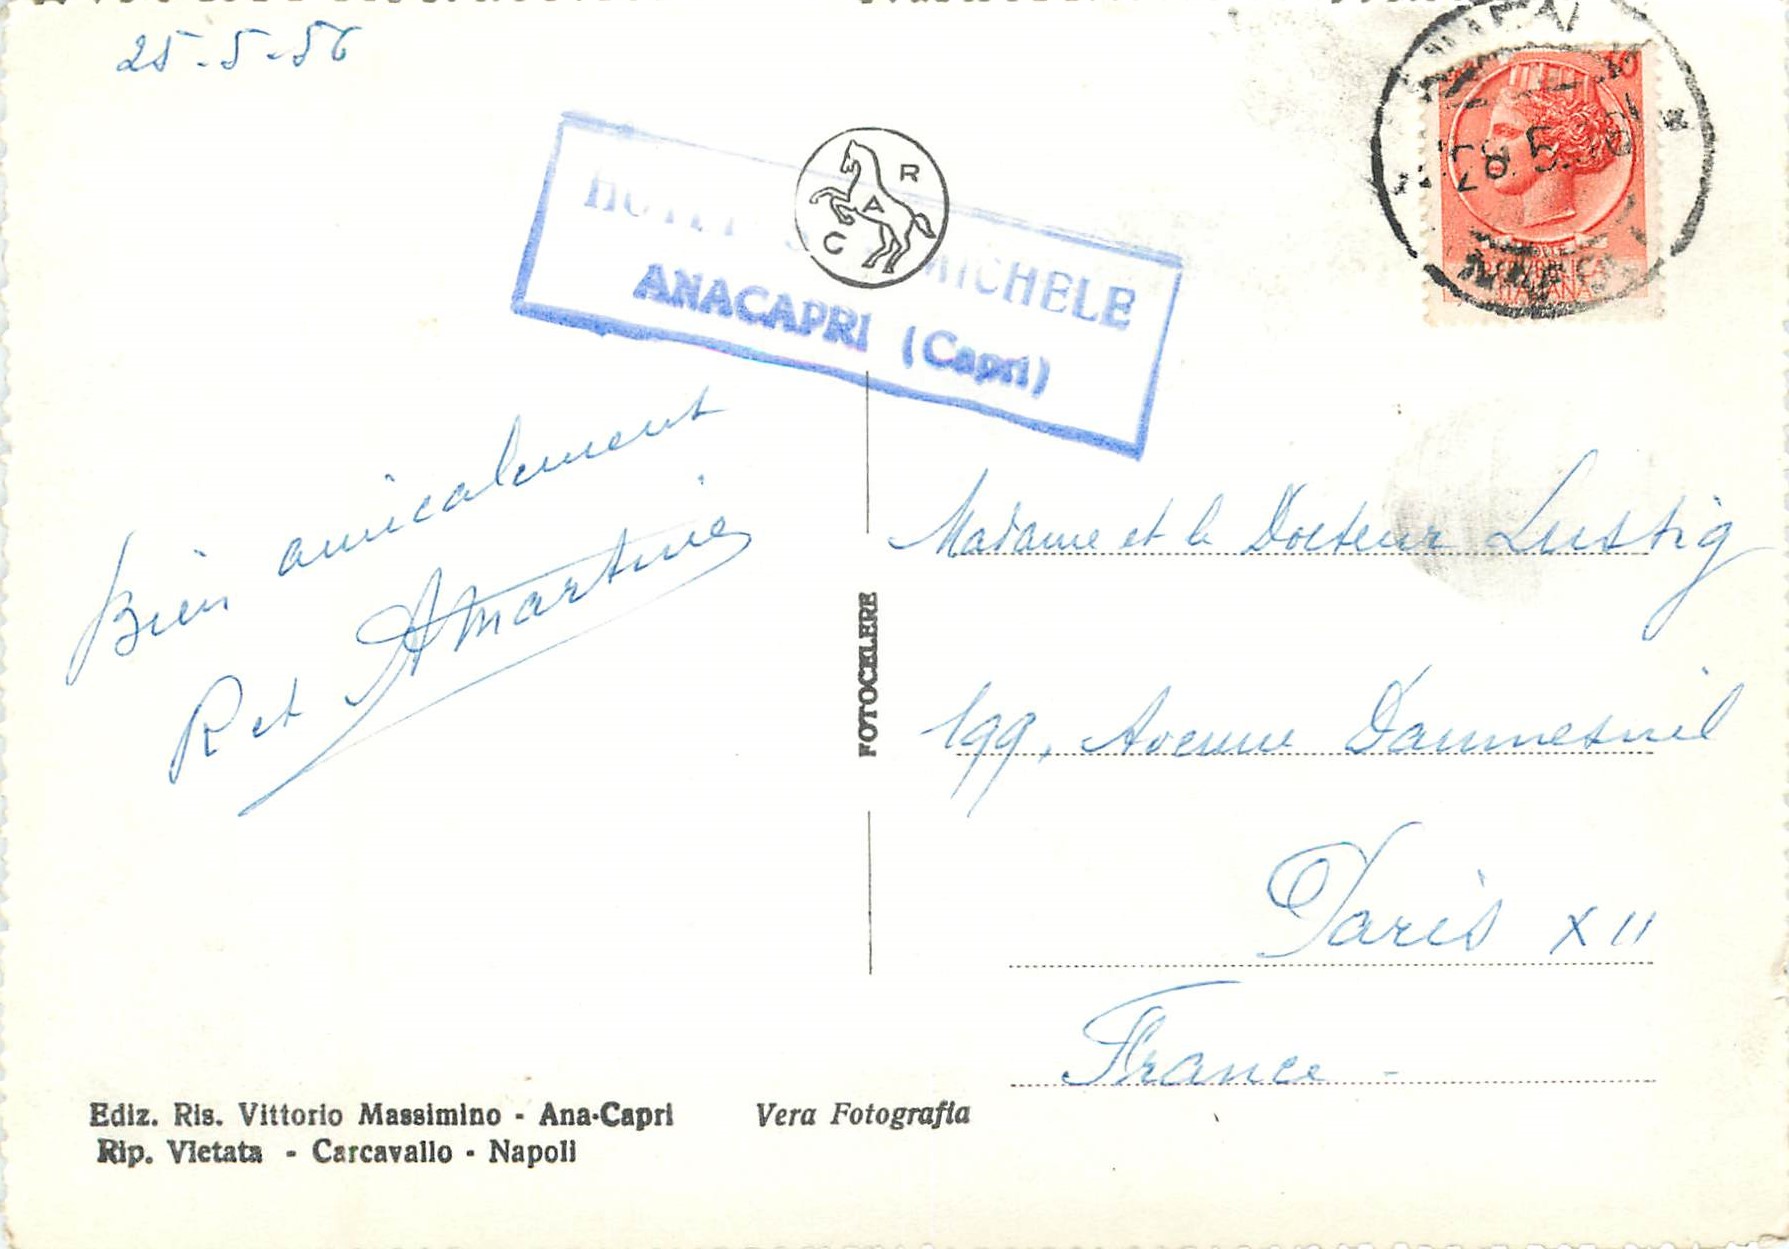 25-5-56
HOTEL S. MICHELE
ANACAPRI (Capri)
R
A
C
28.5.56
ITALIANA
Bien amicalement
R et A Martine
FOTOCELERE
Madame et le Docteur Lustig
199, Avenue Daumesnil
Paris XII
France -
Ediz. Ris. Vittorio Massimino - Ana-Capri
Rip. Vietata - Carcavallo - Napoli
Vera Fotografia